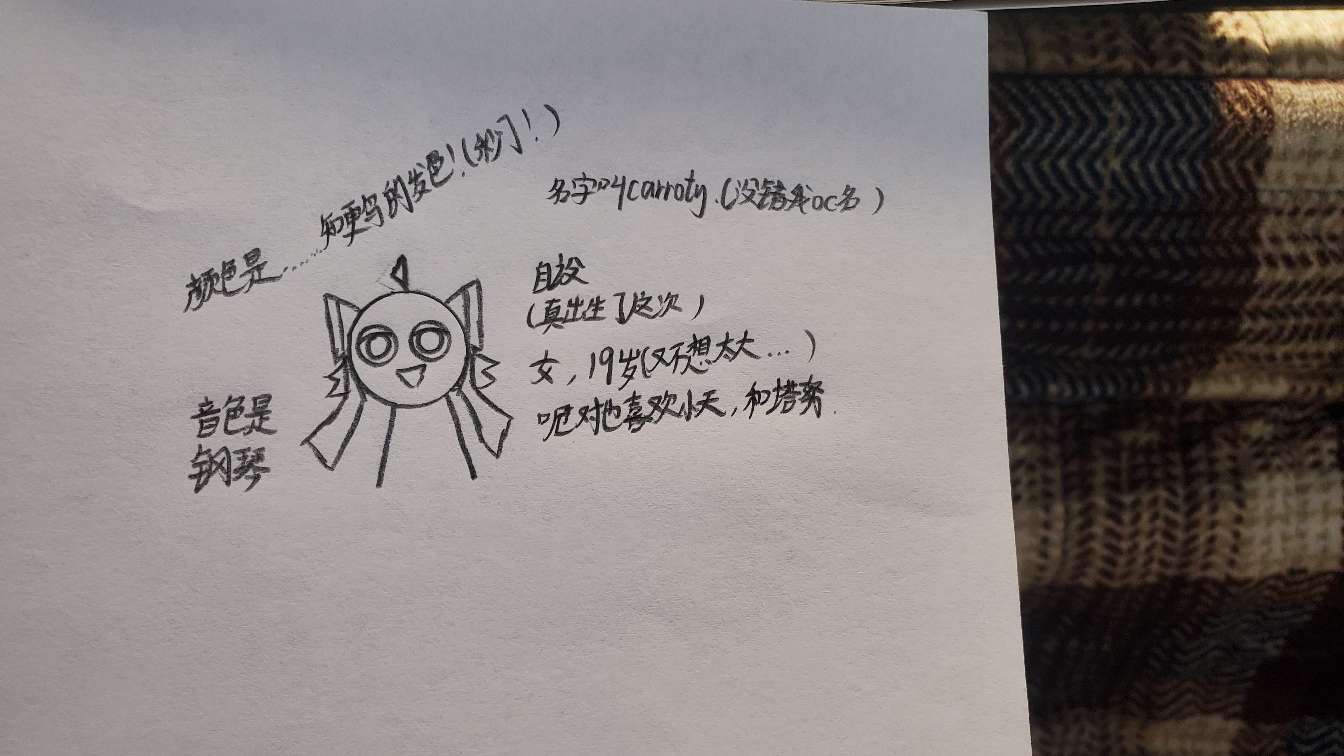 颜色是......知更鸟的发色!(秒了!)
名字叫carroty.(没错我oc名)
自设
(真出生了这次)
女,19岁(又不想太大...)
呃对也喜欢小天,和塔努.
音色是
钢琴